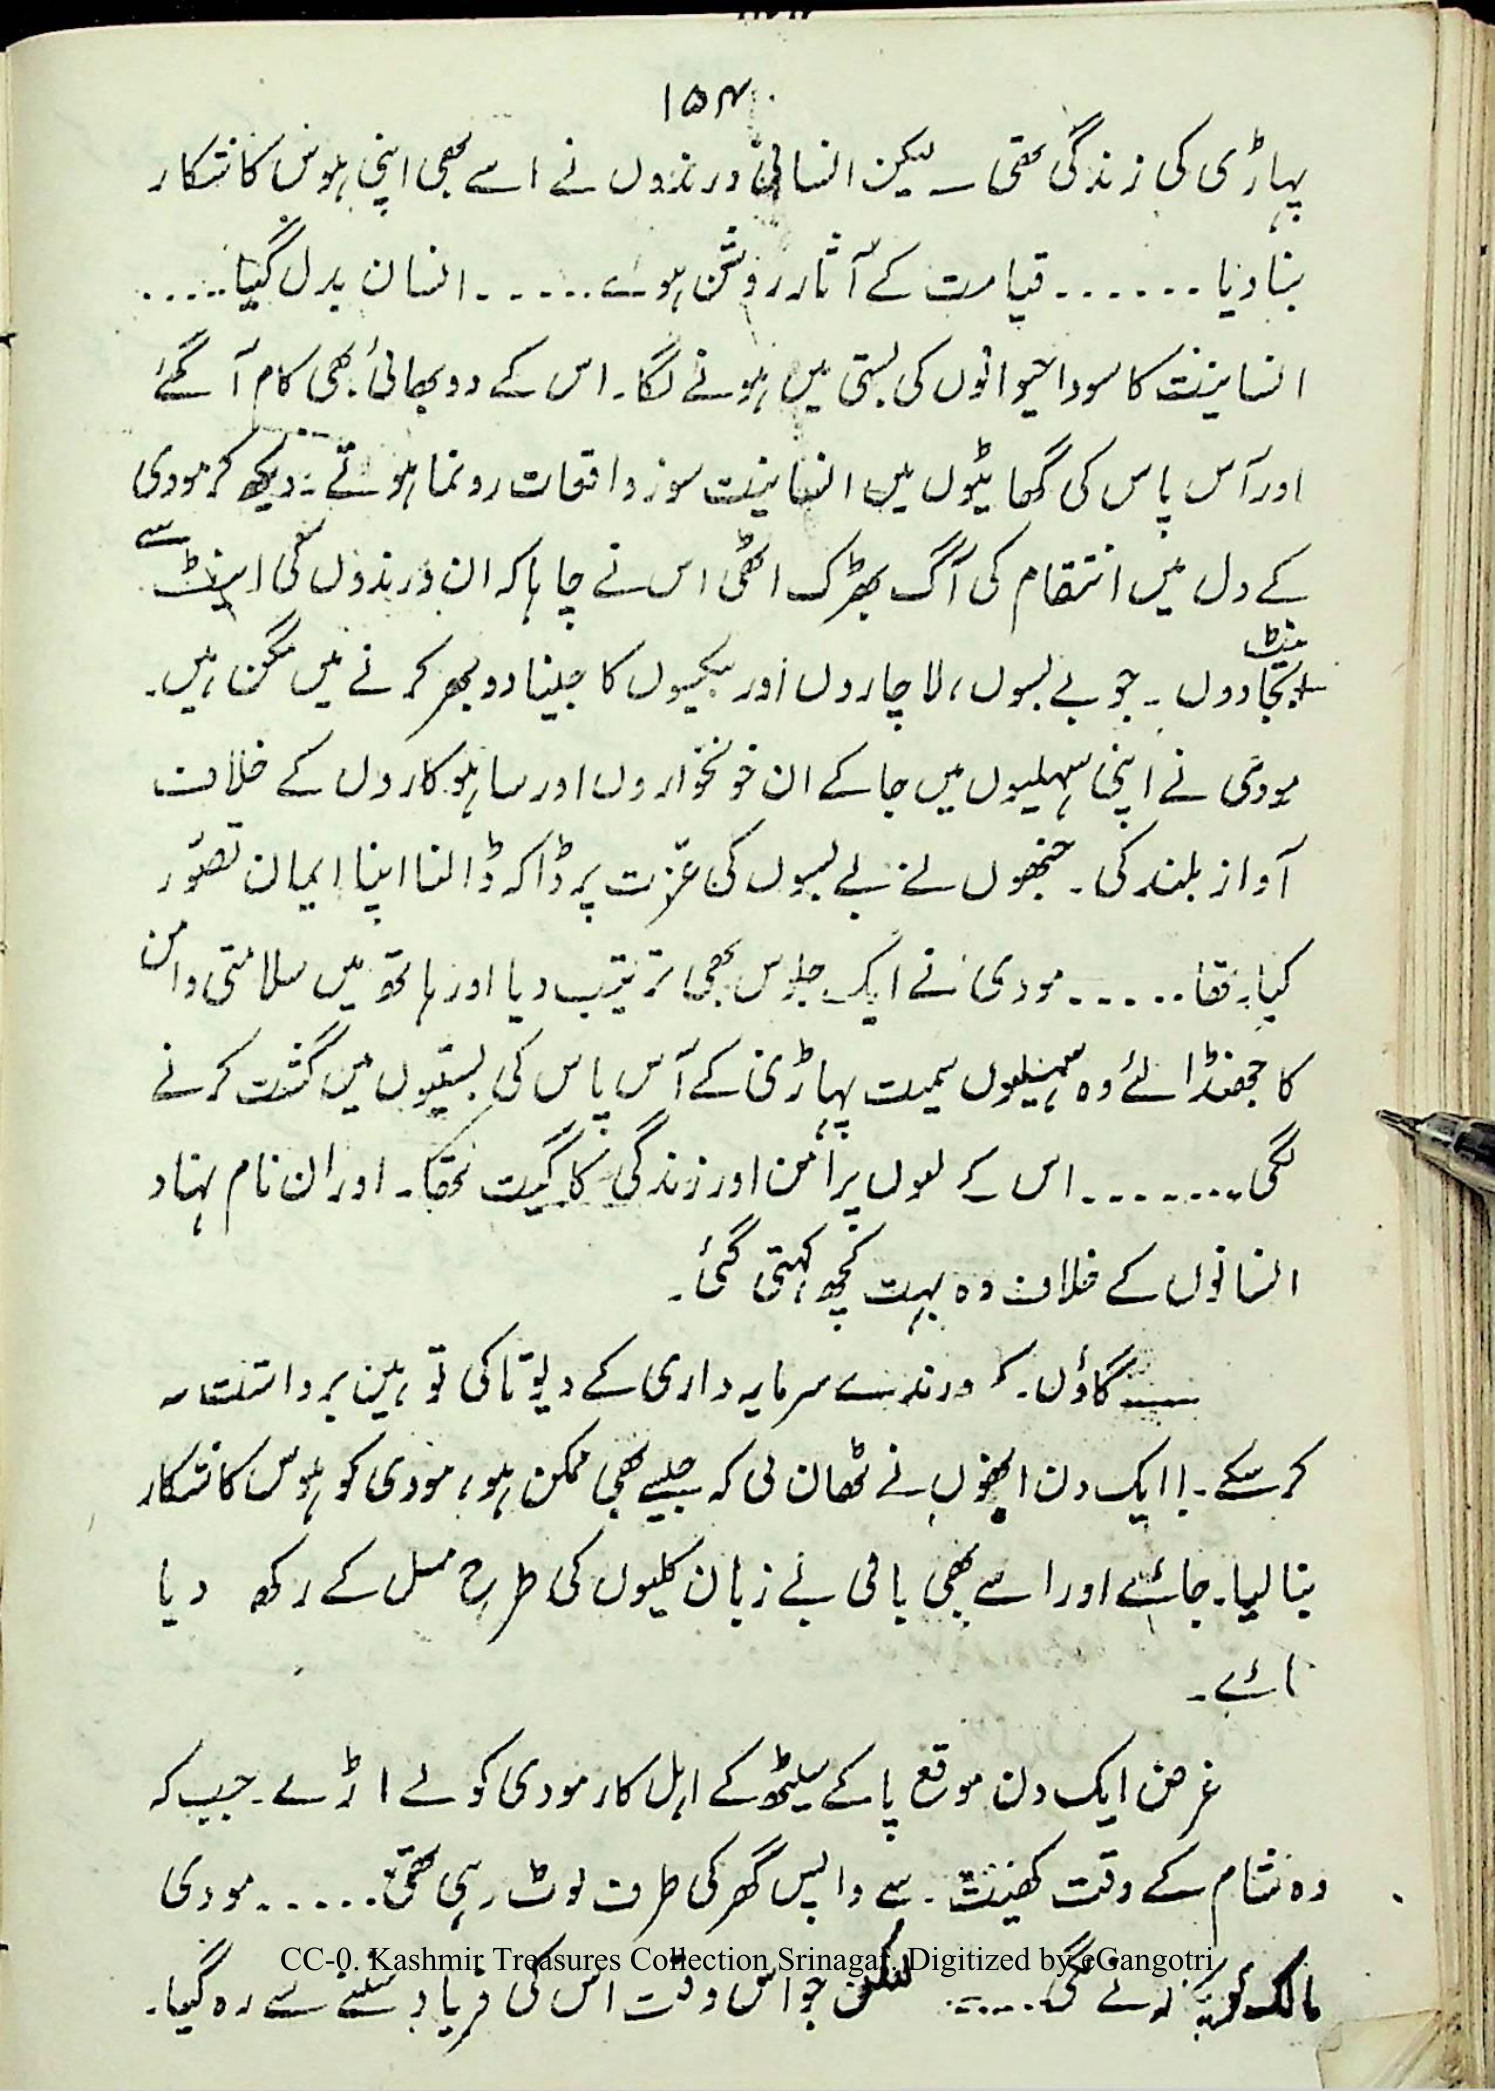 ۱۵۴
پہاڑی کی زندگی تھی۔ لیکن انسانی درندوں نے اسے بھی اپنی ہوس کا شکار
بنا دیا ۔۔۔۔۔۔ قیامت کے آثار روشن ہوے ۔۔۔۔۔۔ انسان بدل گیا ۔۔۔۔۔
انسانیت کا سودا حیوانوں کی بستی میں ہونے لگا۔ اس کے دو بھائی بھی کام آ گئے
اور آس پاس کی گھاٹیوں میں انسانیت سوز واقعات رونما ہوتے دیکھ کر مودی
کے دل میں انتقام کی آگ بھڑک اٹھی اس نے چاہا کہ ان درندوں کی اینٹ سے
اینٹ بجا دوں ۔ جو بے بسوں، لاچاروں اور بیکسوں کا جینا دوبھر کرنے میں مگن ہیں۔
مودی نے اپنی سہیلیوں میں جا کے ان خونخواروں اور ساہوکاروں کے خلاف
آواز بلند کی ۔ جنھوں نے بے بسوں کی عزّت پر ڈاکہ ڈالنا اپنا ایمان تصوّر
کیا تھا ۔۔۔۔۔ مودی نے ایک جلوس بھی ترتیب دیا اور ہاتھ میں سلامتی و امن
کا جھنڈا لئے وہ سہیلیوں سمیت پہاڑی کے آس پاس کی بستیوں میں گشت کرنے
لگی ۔۔۔۔۔۔۔ اس کے لبوں پر امن اور زندگی کا گیت تھا۔ اور ان نام نہاد
انسانوں کے خلاف وہ بہت کچھ کہتی گئی ۔
گاؤں کے درندے سرمایہ داری کے دیوتا کی توہین برداشت نہ
کر سکے ۔ ایک دن انھوں نے ٹھان لی کہ جیسے بھی ممکن ہو، مودی کو ہوس کا شکار
بنا لیا جائے اور اسے بھی باقی بے زبان کلیوں کی طرح مسل کے رکھ دیا
جائے ۔
غرض ایک دن موقع پا کے سیٹھ کے اہل کار مودی کو لے اڑے ۔ جب کہ
وہ شام کے وقت کھیت سے واپس گھر کی طرف لوٹ رہی تھی ۔۔۔۔۔ مودی
مالک کو لگی ۔۔۔۔۔ لیکن جو اس وقت اس کی فریاد سننے سے رہ گیا ۔
CC-0. Kashmir Treasures Collection Srinagar. Digitized by eGangotri